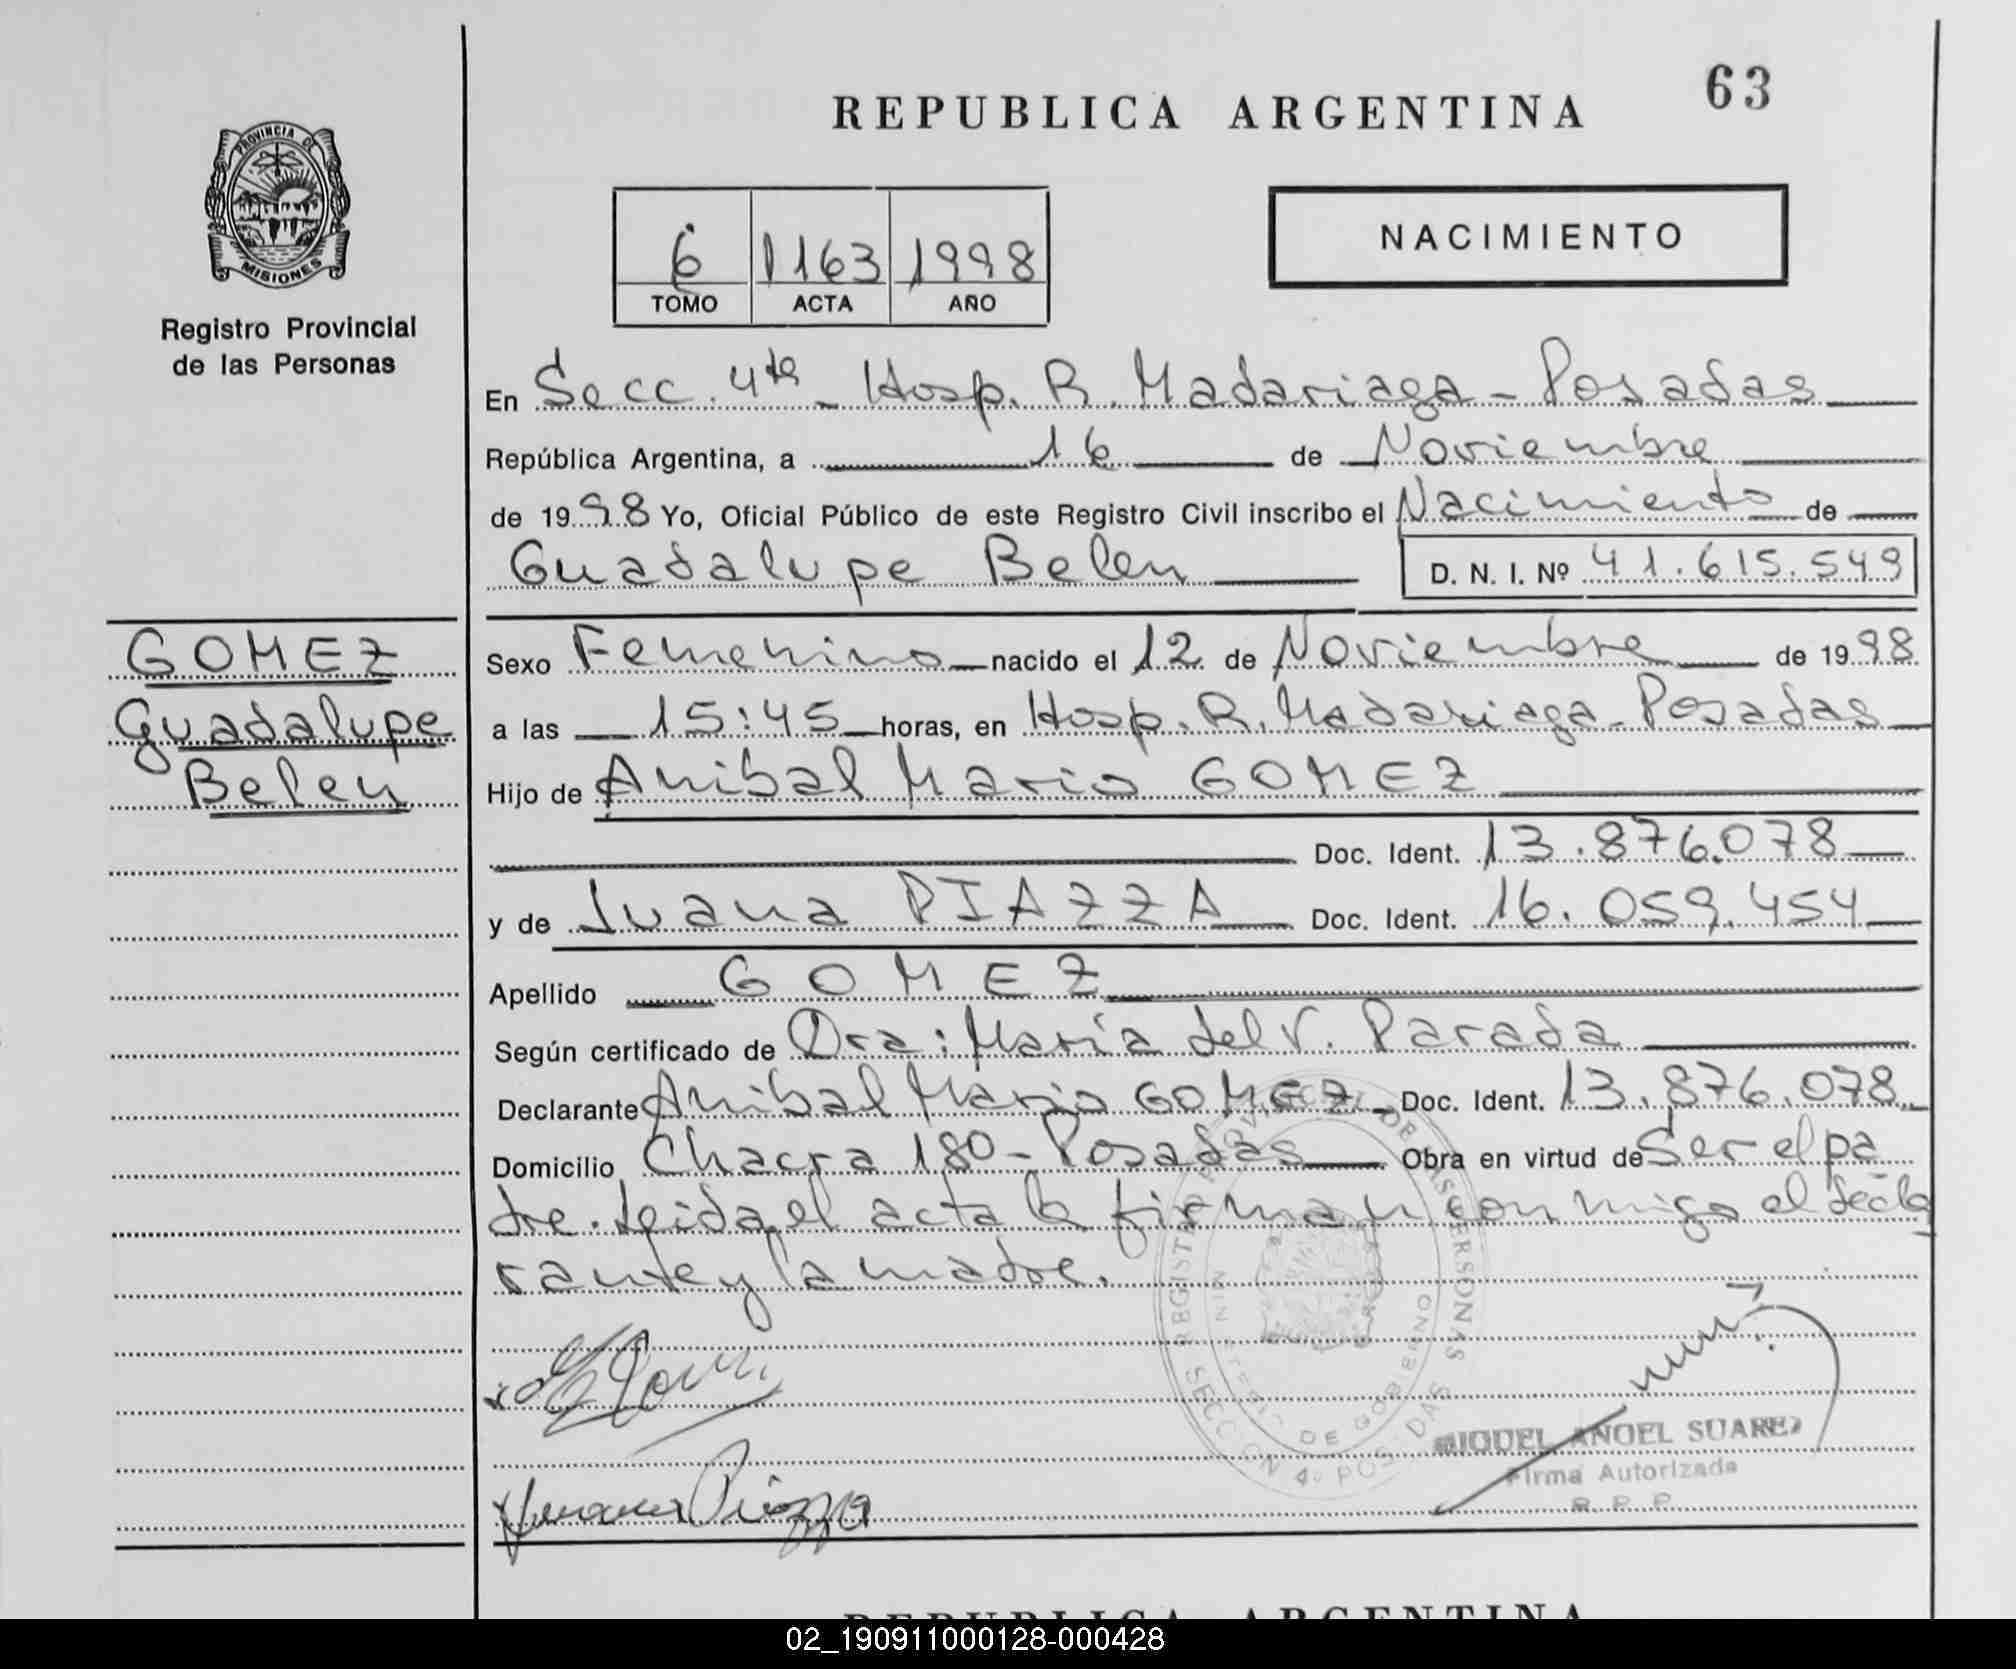 63
REPUBLICA ARGENTINA
PROVINCIA DE
MISIONES
Registro Provincial
de las Personas
6 1163 1998
TOMO ACTA AÑO
NACIMIENTO
En Secc. 4ta - Hosp. R. Madariaga - Posadas
República Argentina, a 16 de Noviembre
de 1998 Yo, Oficial Público de este Registro Civil inscribo el Nacimiento de
Guadalupe Belen D. N. I. Nº 41.615.549
GOMEZ
Guadalupe
Belen
Sexo Femenino nacido el 12 de Noviembre de 1998
a las 15:45 horas, en Hosp. R. Madariaga - Posadas
Hijo de Anibal Mario GOMEZ
Doc. Ident. 13.876.078
y de Juana PIAZZA Doc. Ident. 16.059.454
Apellido GOMEZ
Según certificado de Dra: María del V. Parada
Declarante Anibal Mario GOMEZ - Doc. Ident. 13.876.078
Domicilio Chacra 180 - Posadas Obra en virtud de Ser el pa
dre. Leida el acta la firman conmigo el decla
rante y la madre.
REGISTRO PROVINCIAL DE LAS PERSONAS
MINISTERIO DE GOBIERNO
SECCION 4º POSADAS
Juana Piazza
MIGUEL ANGEL SUAREZ
Firma Autorizada
R. P. P.
REPUBLICA ARGENTINA
02_190911000128-000428